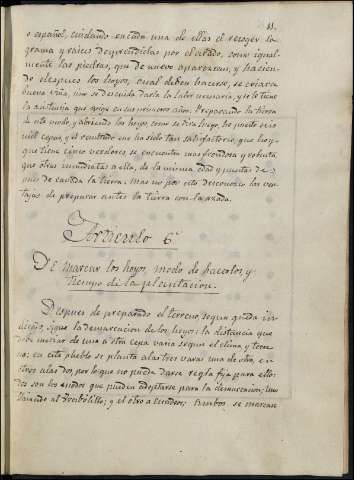 11.
o español, cuidando en cada una de ellas el recoger la
grama y raices desprendidas por el arado, como igual-
mente las piedras, que de nuevo aparezcan, y hacien-
do despues los hoyos, cual deben hacerse, se criara
buena viña, sino se descuida darle la labor necesaria, y se le tiene
la asistencia que exige en sus primeros años. Preparando la tierra
de este modo y abriendo los hoyos, como se dira luego, he puesto seis
mil cepas, y el resultado me ha sido tan satisfactorio, que los
que tiene cinco verdores se encuentra mas frondosa y robusta
que otras inmediatas a ella, de la misma edad y puestas de-
spues de cavada la tierra; mas no por esto desconozco las ven-
tajas de preparar antes la tierra con la azada.
Articulo 6.º
De marcar los hoyos, modo de hacerlos, y
tiempo de la plantacion.
Despues de preparado el terreno, segun queda in-
dicado, sigue la demarcacion de los hoyos: la distancia que
debe mediar de una a otra cepa varia segun el clima y terre-
no; en este pueblo se planta a las tres varas una de otra, en
otros a las dos, por lo que no puede darse regla fija para ello:
dos son los modos que pueden adoptarse para la demarcacion; uno
llamado al Tresbolillo; y el otro a Cuadros; Ambos, se marcan